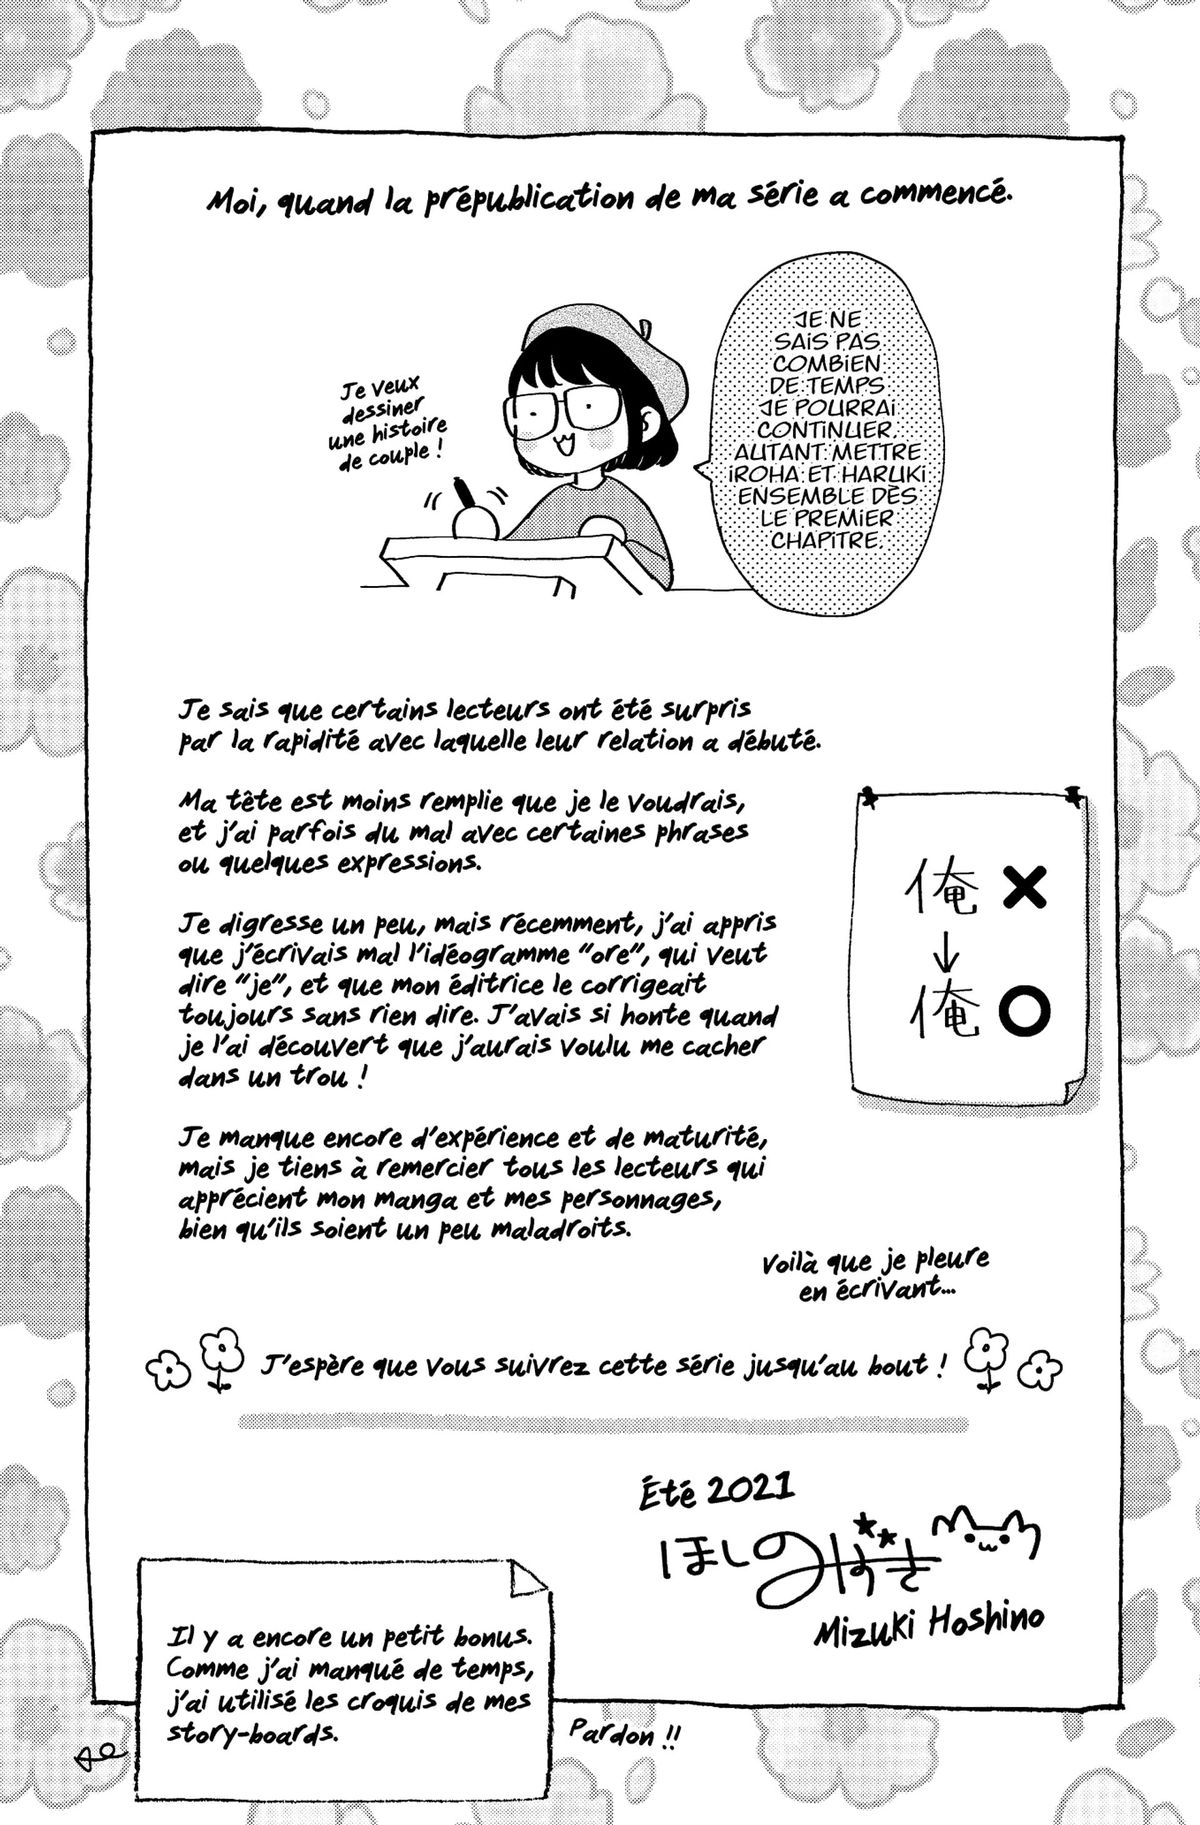 Moi, quand la prépublication de ma série a commencé.
Je veux
dessiner
une histoire
de couple !
JE NE
SAIS PAS
COMBIEN
DE TEMPS
JE POURRAI
CONTINUER.
AUTANT METTRE
IROHA ET HARUKI
ENSEMBLE DÈS
LE PREMIER
CHAPITRE.
Je sais que certains lecteurs ont été surpris
par la rapidité avec laquelle leur relation a débuté.
Ma tête est moins remplie que je le voudrais,
et j'ai parfois du mal avec certaines phrases
ou quelques expressions.
Je digresse un peu, mais récemment, j'ai appris
que j'écrivais mal l'idéogramme "ore", qui veut
dire "je", et que mon éditrice le corrigeait
toujours sans rien dire. J'avais si honte quand
je l'ai découvert que j'aurais voulu me cacher
dans un trou !
俺 ×
↓
俺 ○
Je manque encore d'expérience et de maturité,
mais je tiens à remercier tous les lecteurs qui
apprécient mon manga et mes personnages,
bien qu'ils soient un peu maladroits.
Voilà que je pleure
en écrivant...
J'espère que vous suivrez cette série jusqu'au bout !
Été 2021
ほしのみずき
Mizuki Hoshino
Il y a encore un petit bonus.
Comme j'ai manqué de temps,
j'ai utilisé les croquis de mes
story-boards.
Pardon !!